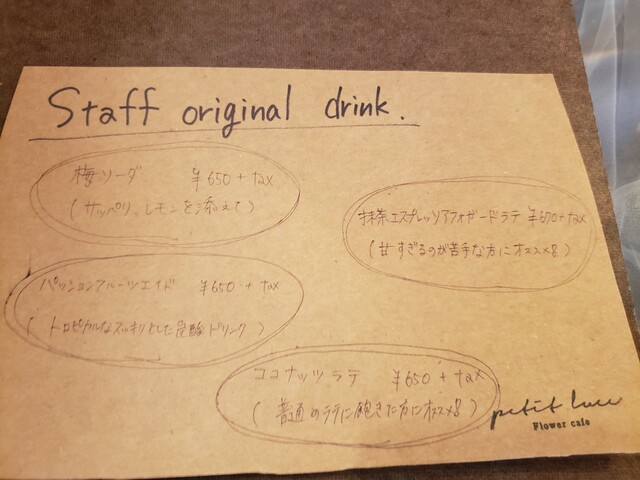 Staff original drink.
梅ソーダ ¥650 + tax
(サッパリ。レモンを添えて)
抹茶エスプレッソアフォガードラテ ¥670+tax
(甘すぎるのが苦手な方にオススメ8)
パッションフルーツエイド ¥650 + tax
(トロピカルなスッキリとした炭酸ドリンク)
ココナッツラテ ¥650 + tax
(普通のラテに飽きた方にオススメ8)
petit luce
Flower cafe